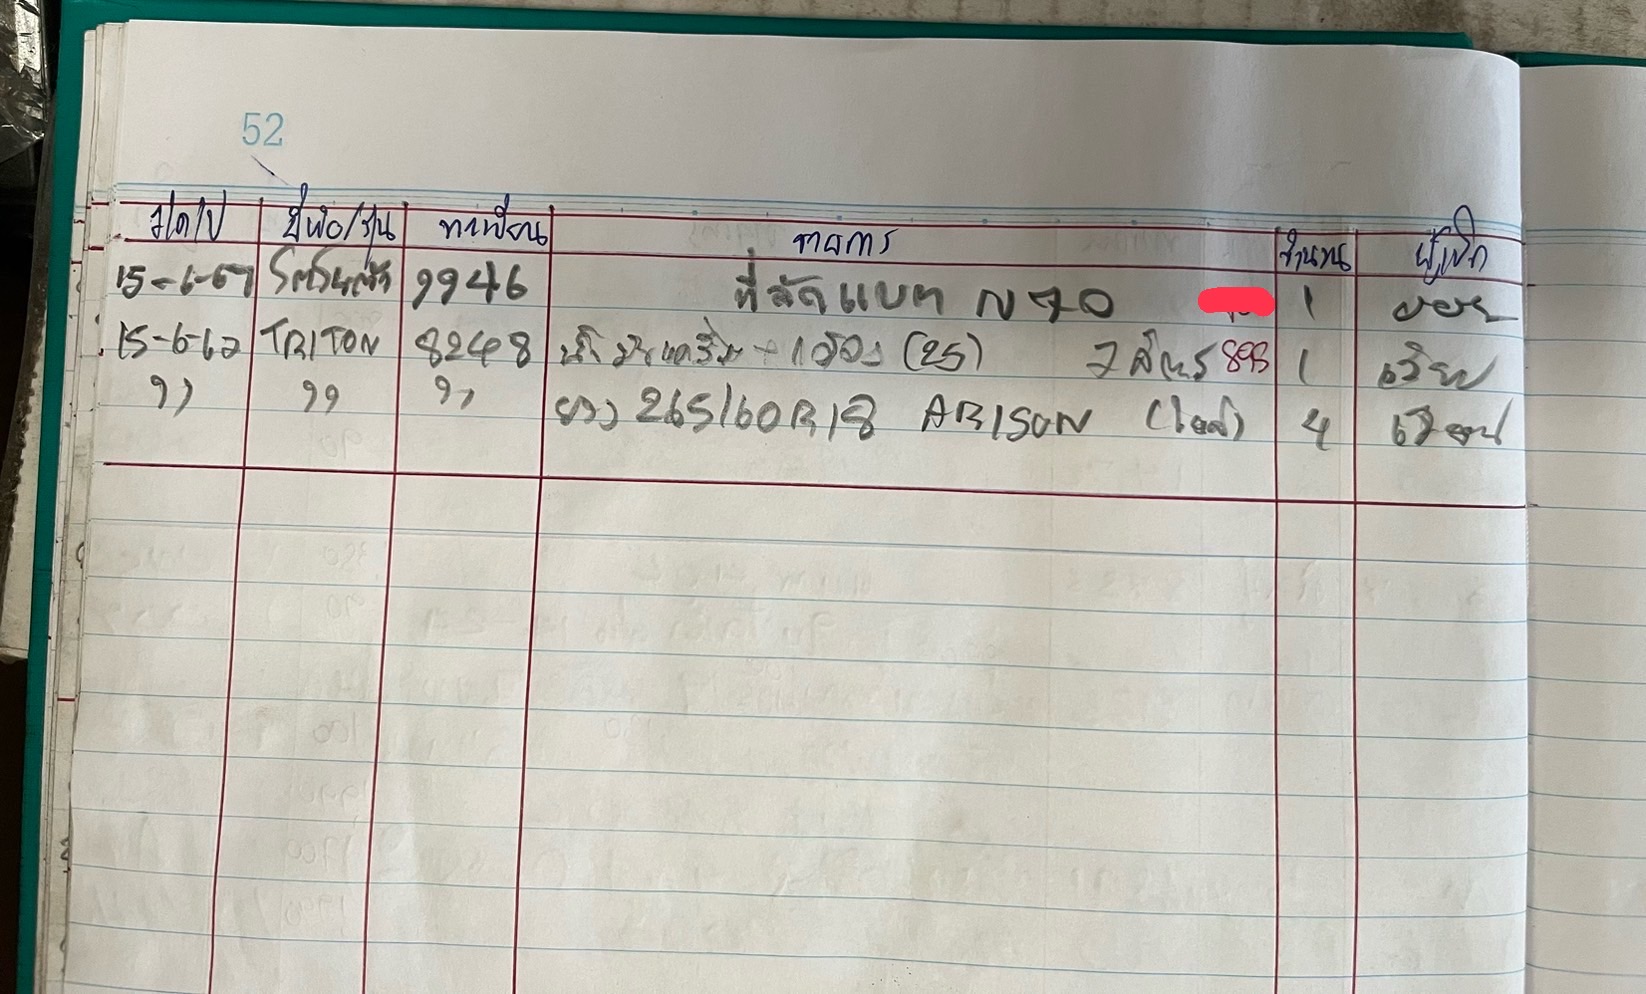 52
ว/ด/ป ยี่ห้อ/รุ่น ทะเบียน รายการ จำนวน ผู้เบิก
15-6-67 9946 ที่รัดแบต N70 1
15-6-67 TRITON 8248 น้ำมันเครื่อง (25) 7 ลิตร 893 1
,, ,, ,, ยาง 265/60R18 ARISON 4